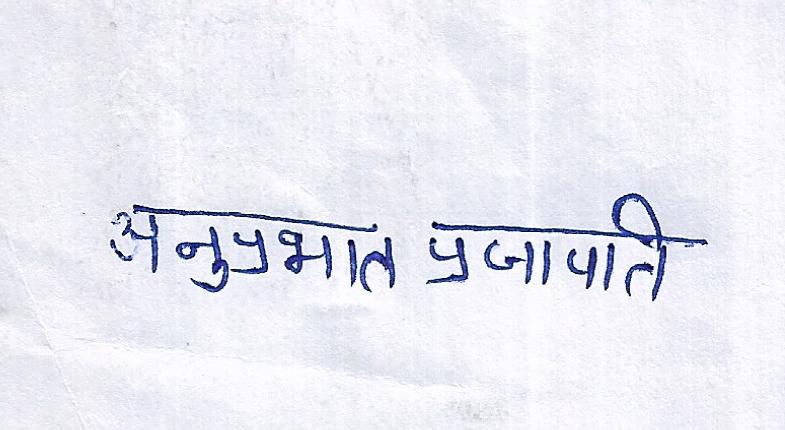 अनुप्रभात प्रजापति